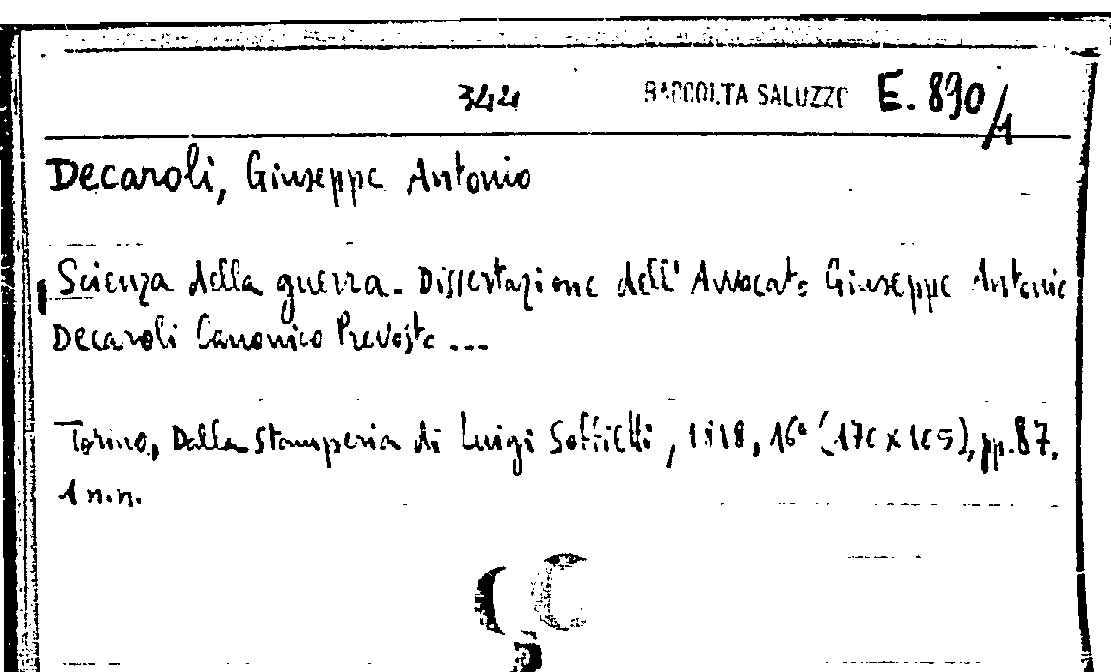 344 RACCOLTA SALUZZO E. 890/1
Decaroli, Giuseppe Antonio
Scienza della guerra. Dissertazione dell' Avvocato Giuseppe Antonio
Decaroli Canonico Prevosto ...
Torino, Dalla Stamperia di Luigi Soffietti, 1818, 16° (170 x 105), pp. 87.
1 n.n.